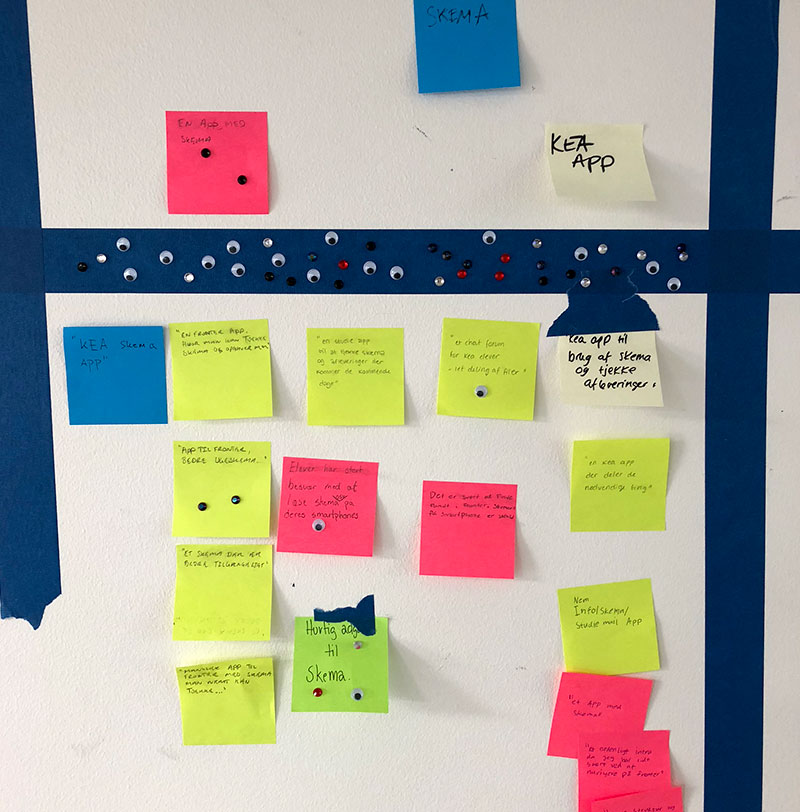 SKEMA
EN APP MED
SKEMA
KEA
APP
"KEA SKEMA
APP"
"EN FRONTER APP,
HVOR MAN KAN TJEKKE
SKEMA OG
"en studie app
til at tjekke skema
og afleveringer der
kommer de kommende
dage"
"et chat forum
for kea elever
- let deling af filer"
kea app til
brug af skema
og tjekke
afleveringer.
"APP TIL FRONTER,
BEDRE UGESKEMA."
Eleven har stort
besvær med at
læse skema på
deres smartphones
Det er svært at finde
rundt i fronter, skemaet
på smartphone er
"en kea app
der deler de
nødvendige ting"
"ET SKEMA DER ER
BEDRE TILGÆNGELIGT"
Hurtig
til
Skema.
Nem
Info/skema/
Studie mail App
APP TIL
FRONTER MED SKEMA
MAN NEMT KAN
TJEKKE..."
"et App med
skemaer
ordenligt intro
da jeg har lidt
svært ved at
navigere på fronter"